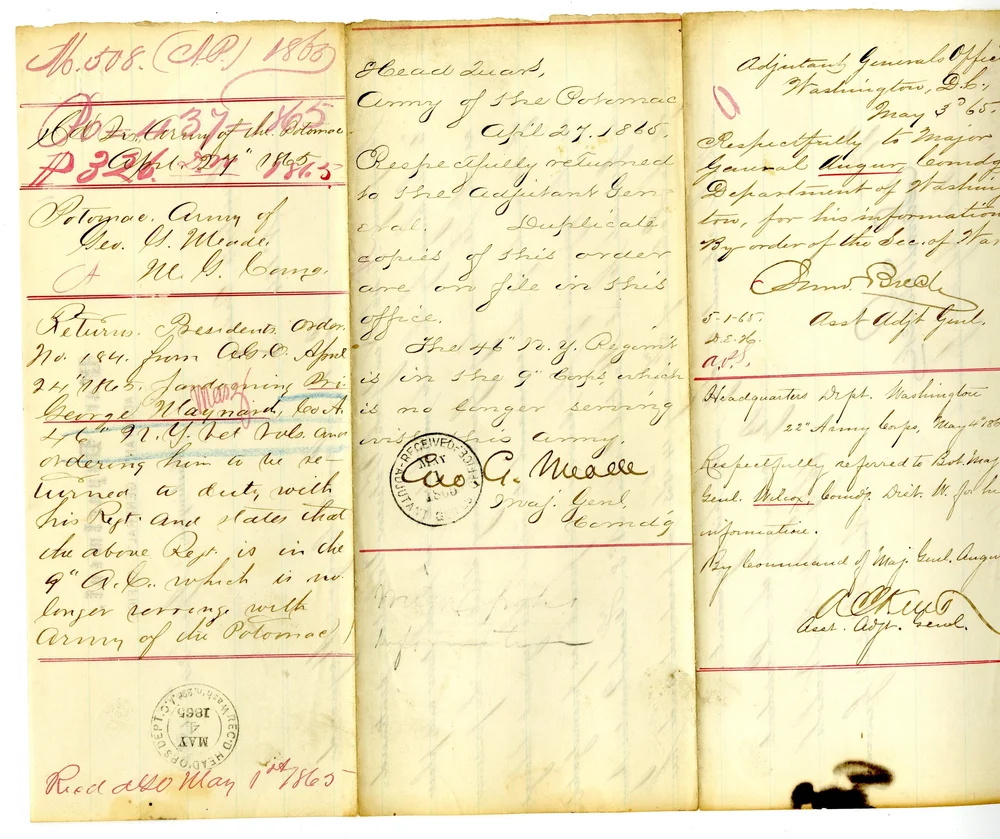 M. 508. (A.P.) 1865
Hd Qrs. Army of the Potomac
April 27" 1865
P 326. 1865
Potomac. Army of
Geo. G. Meade
M. G. Comg.
A
Returns Presidents Order
No. 184. from A.G.O. April
24" 1865. pardoning Pri
Masg
George Maynard, Co A.
46" N.Y. Vet Vols. and
ordering him to be re-
turned to duty with
his Regt. and states that
the above Regt. is in the
9" A.C. which is no
longer serving with
Army of the Potomac
REC'D HEAD'QRS DEP'T
MAY
4
1865
Recd AGO May 1st 1865
Head Quars,
Army of the Potomac
April 27. 1865.
Respectfully returned
to the Adjutant Gen-
eral. Duplicate
copies of this order
are on file in this
office.
The 46" N. Y. Regim't
is in the 9" Corps, which
is no longer serving
with this army.
Geo. G. Meade
Maj. Genl.
Comd'g
RECEIVED
MAY
1
1865
ADJUTANT GEN'LS OFFICE
Adjutant Generals Offic
Washington, D.C.,
May 3d 65.
Respectfully to Major
General Augur, Comdg
Department of Washin
ton, for his information
By order of the Sec. of Wa
Saml. Breck
Asst Adjt Genl.
5-1-65.
D.E.H.
Headquarters Dept. Washington
22" Army Corps, May 4" 186
Respectfully referred to Bvt. Maj
Genl. Wilcox, Comdg. Dist. W. for his
information.
By Command of Maj. Genl. Augu
Asst. Adjt. Genl.